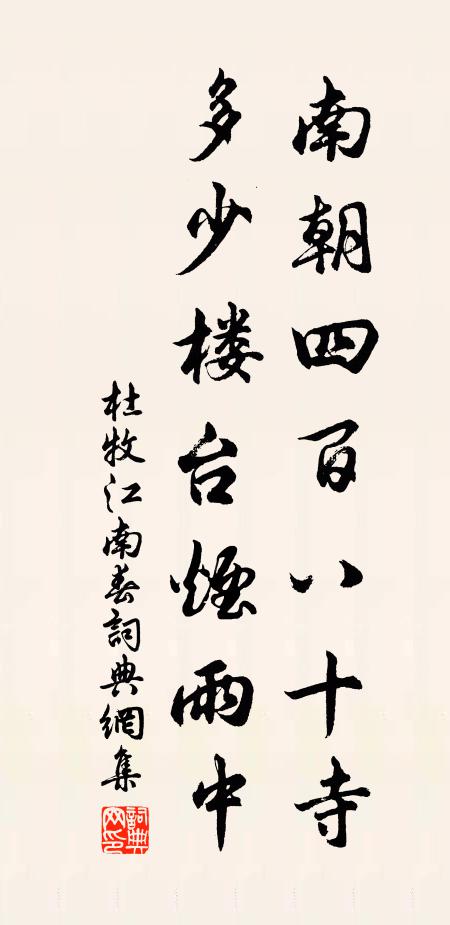 南朝四百八十寺
多少楼台煙雨中
杜牧江南春詞典網集
詞典
网印